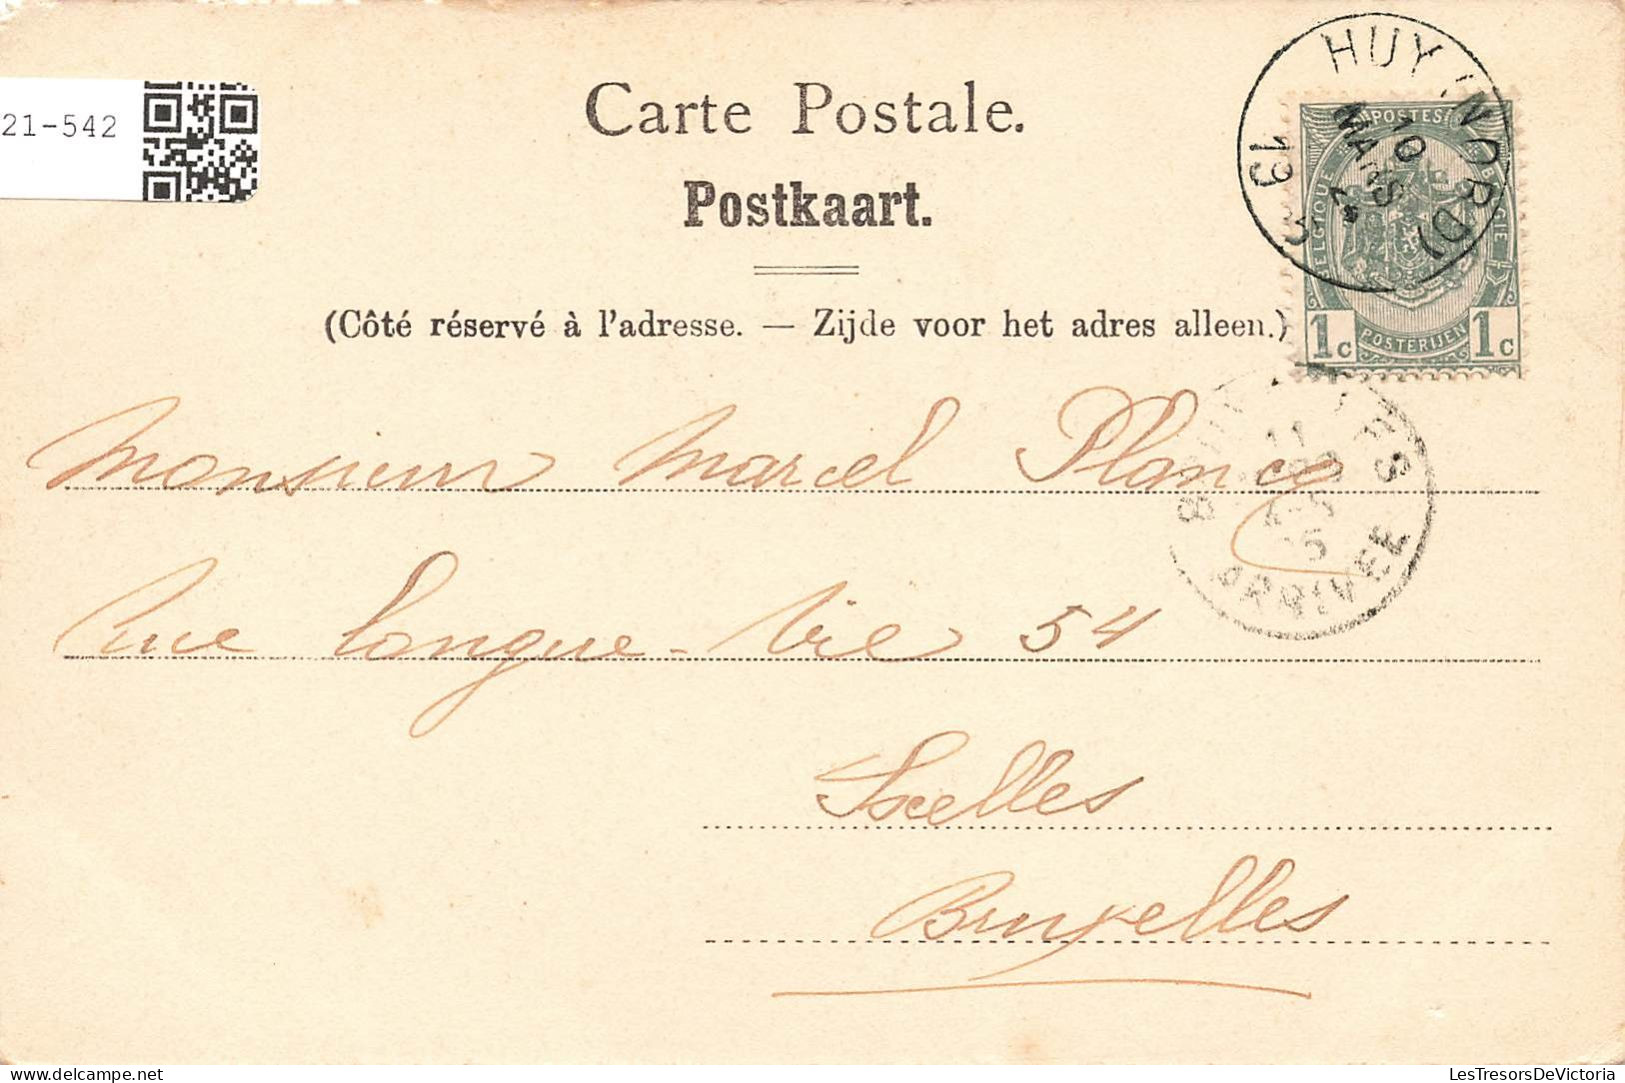 21-542
Carte Postale.
Postkaart.
(Côté réservé à l'adresse. — Zijde voor het adres alleen.)
HUY (NORD)
10
MARS
19
POSTES
BELGIQUE
BELGIE
1c
POSTERIJEN
1c
Monsieur Marcel Plancq
Rue longue-vie 54
Ixelles
Bruxelles
11
ARRIVEE
LesTresorsDeVictoria
delcampe.net